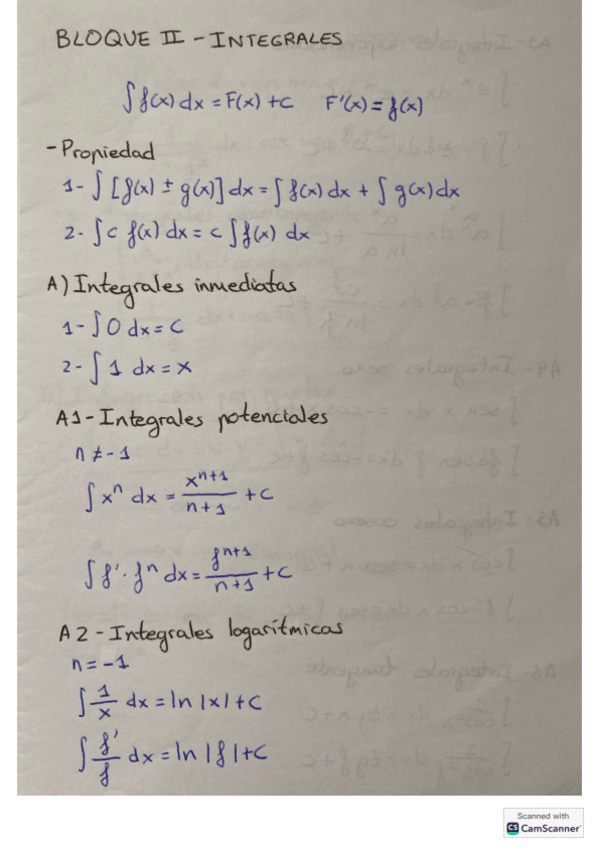 BLOQUE II - INTEGRALES
∫ f(x) dx = F(x) + C    F'(x) = f(x)
- Propiedad
1- ∫ [f(x) ± g(x)] dx = ∫ f(x) dx + ∫ g(x) dx
2- ∫ c f(x) dx = c ∫ f(x) dx
A) Integrales inmediatas
1- ∫ 0 dx = C
2- ∫ 1 dx = x
A1 - Integrales potenciales
n ≠ -1
∫ xⁿ dx = xⁿ⁺¹/(n+1) + C
∫ f' · fⁿ dx = fⁿ⁺¹/(n+1) + C
A2 - Integrales logarítmicas
n = -1
∫ 1/x dx = ln |x| + C
∫ f'/f dx = ln |f| + C
Scanned with
CS CamScanner